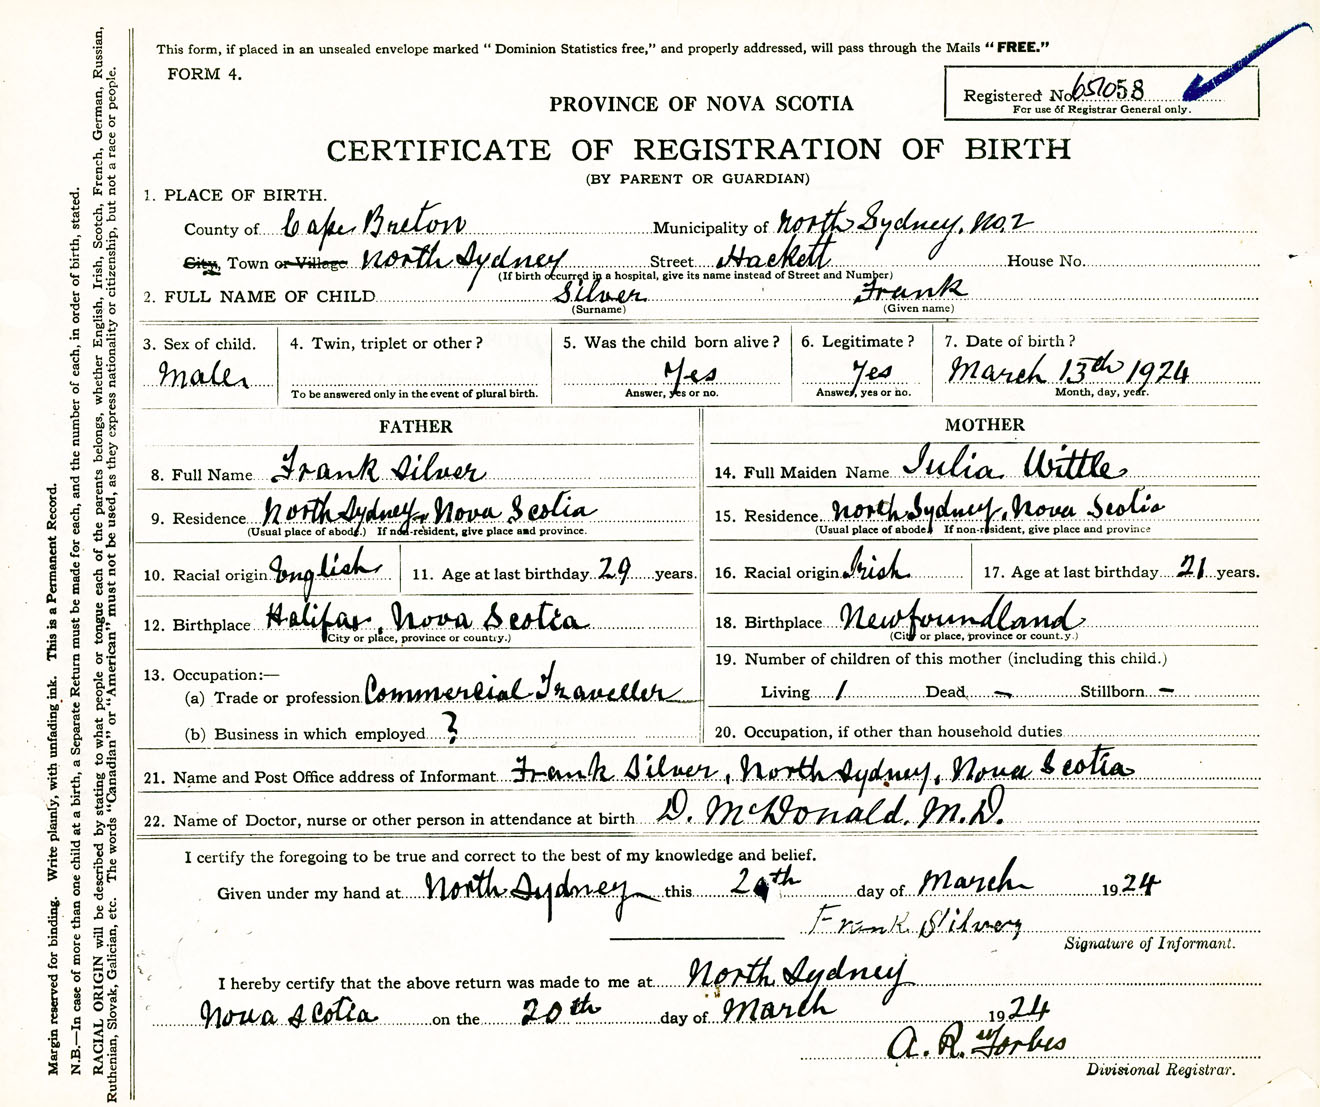 This form, if placed in an unsealed envelope marked " Dominion Statistics free," and properly addressed, will pass through the Mails " FREE."
FORM 4.
Registered No. 
For use of Registrar General only.
PROVINCE OF NOVA SCOTIA
CERTIFICATE OF REGISTRATION OF BIRTH
(BY PARENT OR GUARDIAN)
1. PLACE OF BIRTH.
County of Cape Breton Municipality of North Sydney, No. 2
City, Town or Village North Sydney Street Hackett House No.
(If birth occurred in a hospital, give its name instead of Street and Number)
2. FULL NAME OF CHILD Silver Frank
(Surname) (Given name)
3. Sex of child. 4. Twin, triplet or other ? 5. Was the child born alive ? 6. Legitimate ? 7. Date of birth ?
Male Yes Yes March 13th 1924
To be answered only in the event of plural birth. Answer, yes or no. Answer, yes or no. Month, day, year.
FATHER MOTHER
8. Full Name Frank Silver 14. Full Maiden Name Julia Wittle
9. Residence North Sydney, Nova Scotia 15. Residence North Sydney, Nova Scotia
(Usual place of abode.) If non-resident, give place and province. (Usual place of abode. If non-resident, give place and province
10. Racial origin English 11. Age at last birthday 29 years. 16. Racial origin Irish 17. Age at last birthday 21 years.
12. Birthplace Halifax, Nova Scotia 18. Birthplace Newfoundland
(City or place, province or country.) (City or place, province or country.)
13. Occupation:— 19. Number of children of this mother (including this child.)
(a) Trade or profession Commercial Traveller Living 1 Dead — Stillborn —
(b) Business in which employed ? 20. Occupation, if other than household duties
21. Name and Post Office address of Informant Frank Silver, North Sydney, Nova Scotia
22. Name of Doctor, nurse or other person in attendance at birth D. McDonald. M.D.
I certify the foregoing to be true and correct to the best of my knowledge and belief.
Given under my hand at North Sydney this 20th day of March 1924
Frank Silver
Signature of Informant.
I hereby certify that the above return was made to me at North Sydney
Nova Scotia on the 20th day of March 1924
A. R. Forbes
Divisional Registrar.
Margin reserved for binding. Write plainly, with unfading ink. This is a Permanent Record.
N.B.—In case of more than one child at a birth, a Separate Return must be made for each, and the number of each, in order of birth, stated.
RACIAL ORIGIN will be described by stating to what people or tongue each of the parents belongs, whether English, Irish, Scotch, French, German, Russian,
Ruthenian, Slovak, Galician, etc. The words "Canadian" or "American" must not be used, as they express nationality or citizenship, but not a race or people.